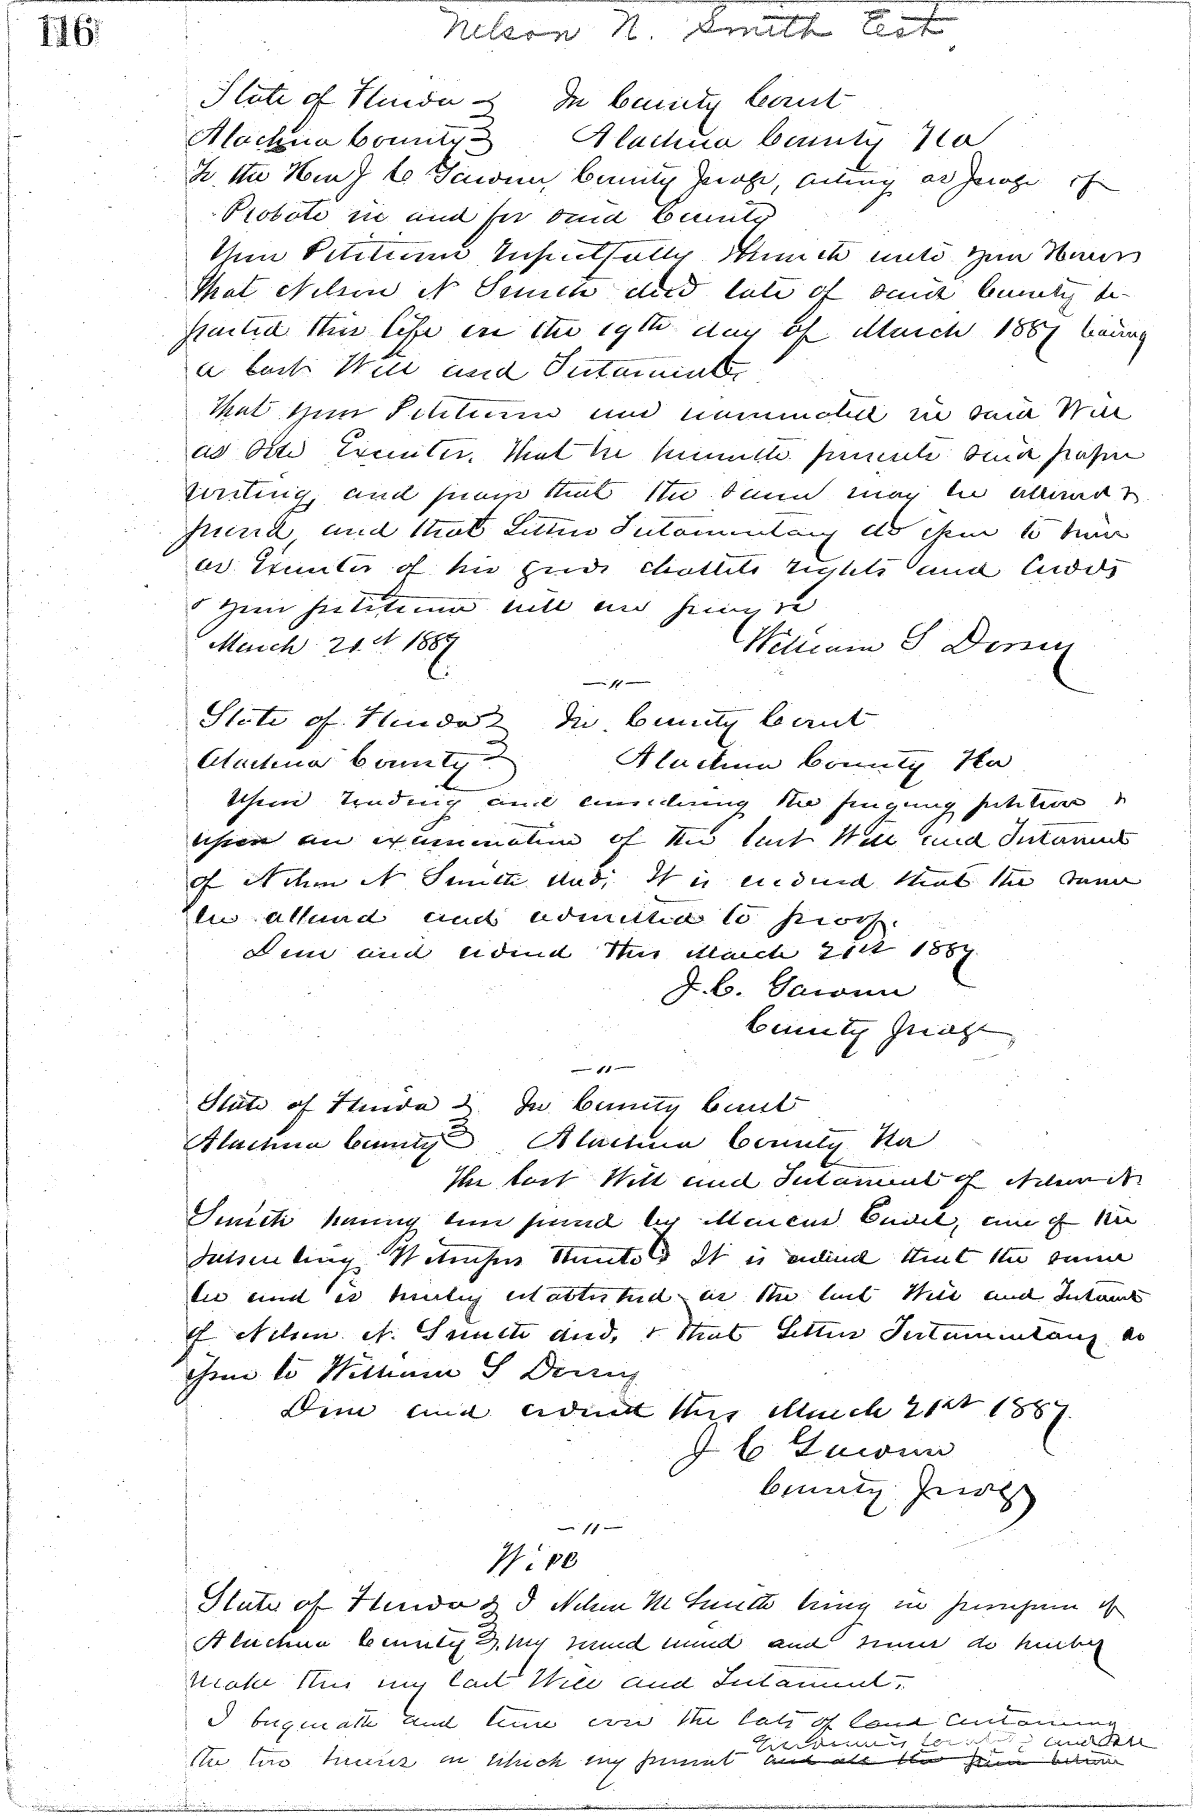 116
Nelson N. Smith Est
State of Florida } In County Court
Alachua County } Alachua County Fla
To the Hon J C Gardner, County Judge, acting as Judge of
Probate in and for said County
Your Petitioner respectfully showeth unto your Honor
that Nelson N Smith decd late of said County de-
parted this life on the 19th day of March 1887 leaving
a last Will and Testament.
That your Petitioner was nominated in said Will
as sole Executor. That he herewith presents said paper
writing, and prays that the same may be allowed &
proved, and that Letters Testamentary do issue to him
as Executor of his goods chattels rights and credits
& your petitioner will ever pray &c
March 21st 1887 William S Dorsey
—"—
State of Florida } In County Court
Alachua County } Alachua County Fla
Upon reading and considering the foregoing petition &
upon an examination of the last Will and Testament
of Nelson N Smith decd; It is ordered that the same
be allowed and admitted to proof.
Done and ordered this March 21st 1887.
J. C. Gardner
County Judge
—"—
State of Florida } In County Court
Alachua County } Alachua County Fla
The last Will and Testament of Nelson N.
Smith having been proved by Marcus Endel, one of the
subscribing Witnesses thereto It is ordered that the same
be and is hereby established as the last Will and Testament
of Nelson N. Smith decd. & that Letters Testamentary do
issue to William S Dorsey
Done and ordered this March 21st 1887.
J C Gardner
County Judge
—"—
Will
State of Florida } I Nelson N Smith being in possession of
Alachua County } my sound mind and senses do hereby
make this my last Will and Testament,
I bequeath and leave over the lots of land containing
and all
the two houses on which my present and all the